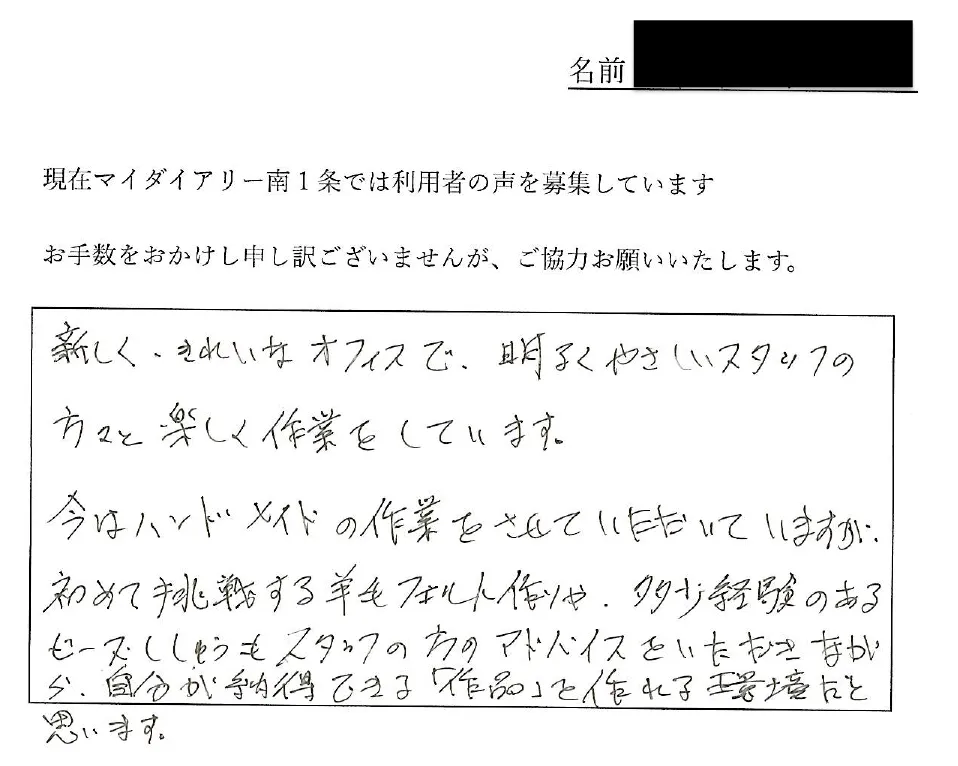 名前
現在マイダイアリー南１条では利用者の声を募集しています
お手数をおかけし申し訳ございませんが、ご協力お願いいたします。
新しく、きれいなオフィスで、明るくやさしいスタッフの
方々と楽しく作業をしています。
今はハンドメイドの作業をさせていただいていますが、
初めて挑戦する羊毛フェルト作りや、多少経験のある
ビーズししゅうもスタッフの方のアドバイスをいただきながか
ら、自分が納得できる「作品」を作れる環境だと
思います。